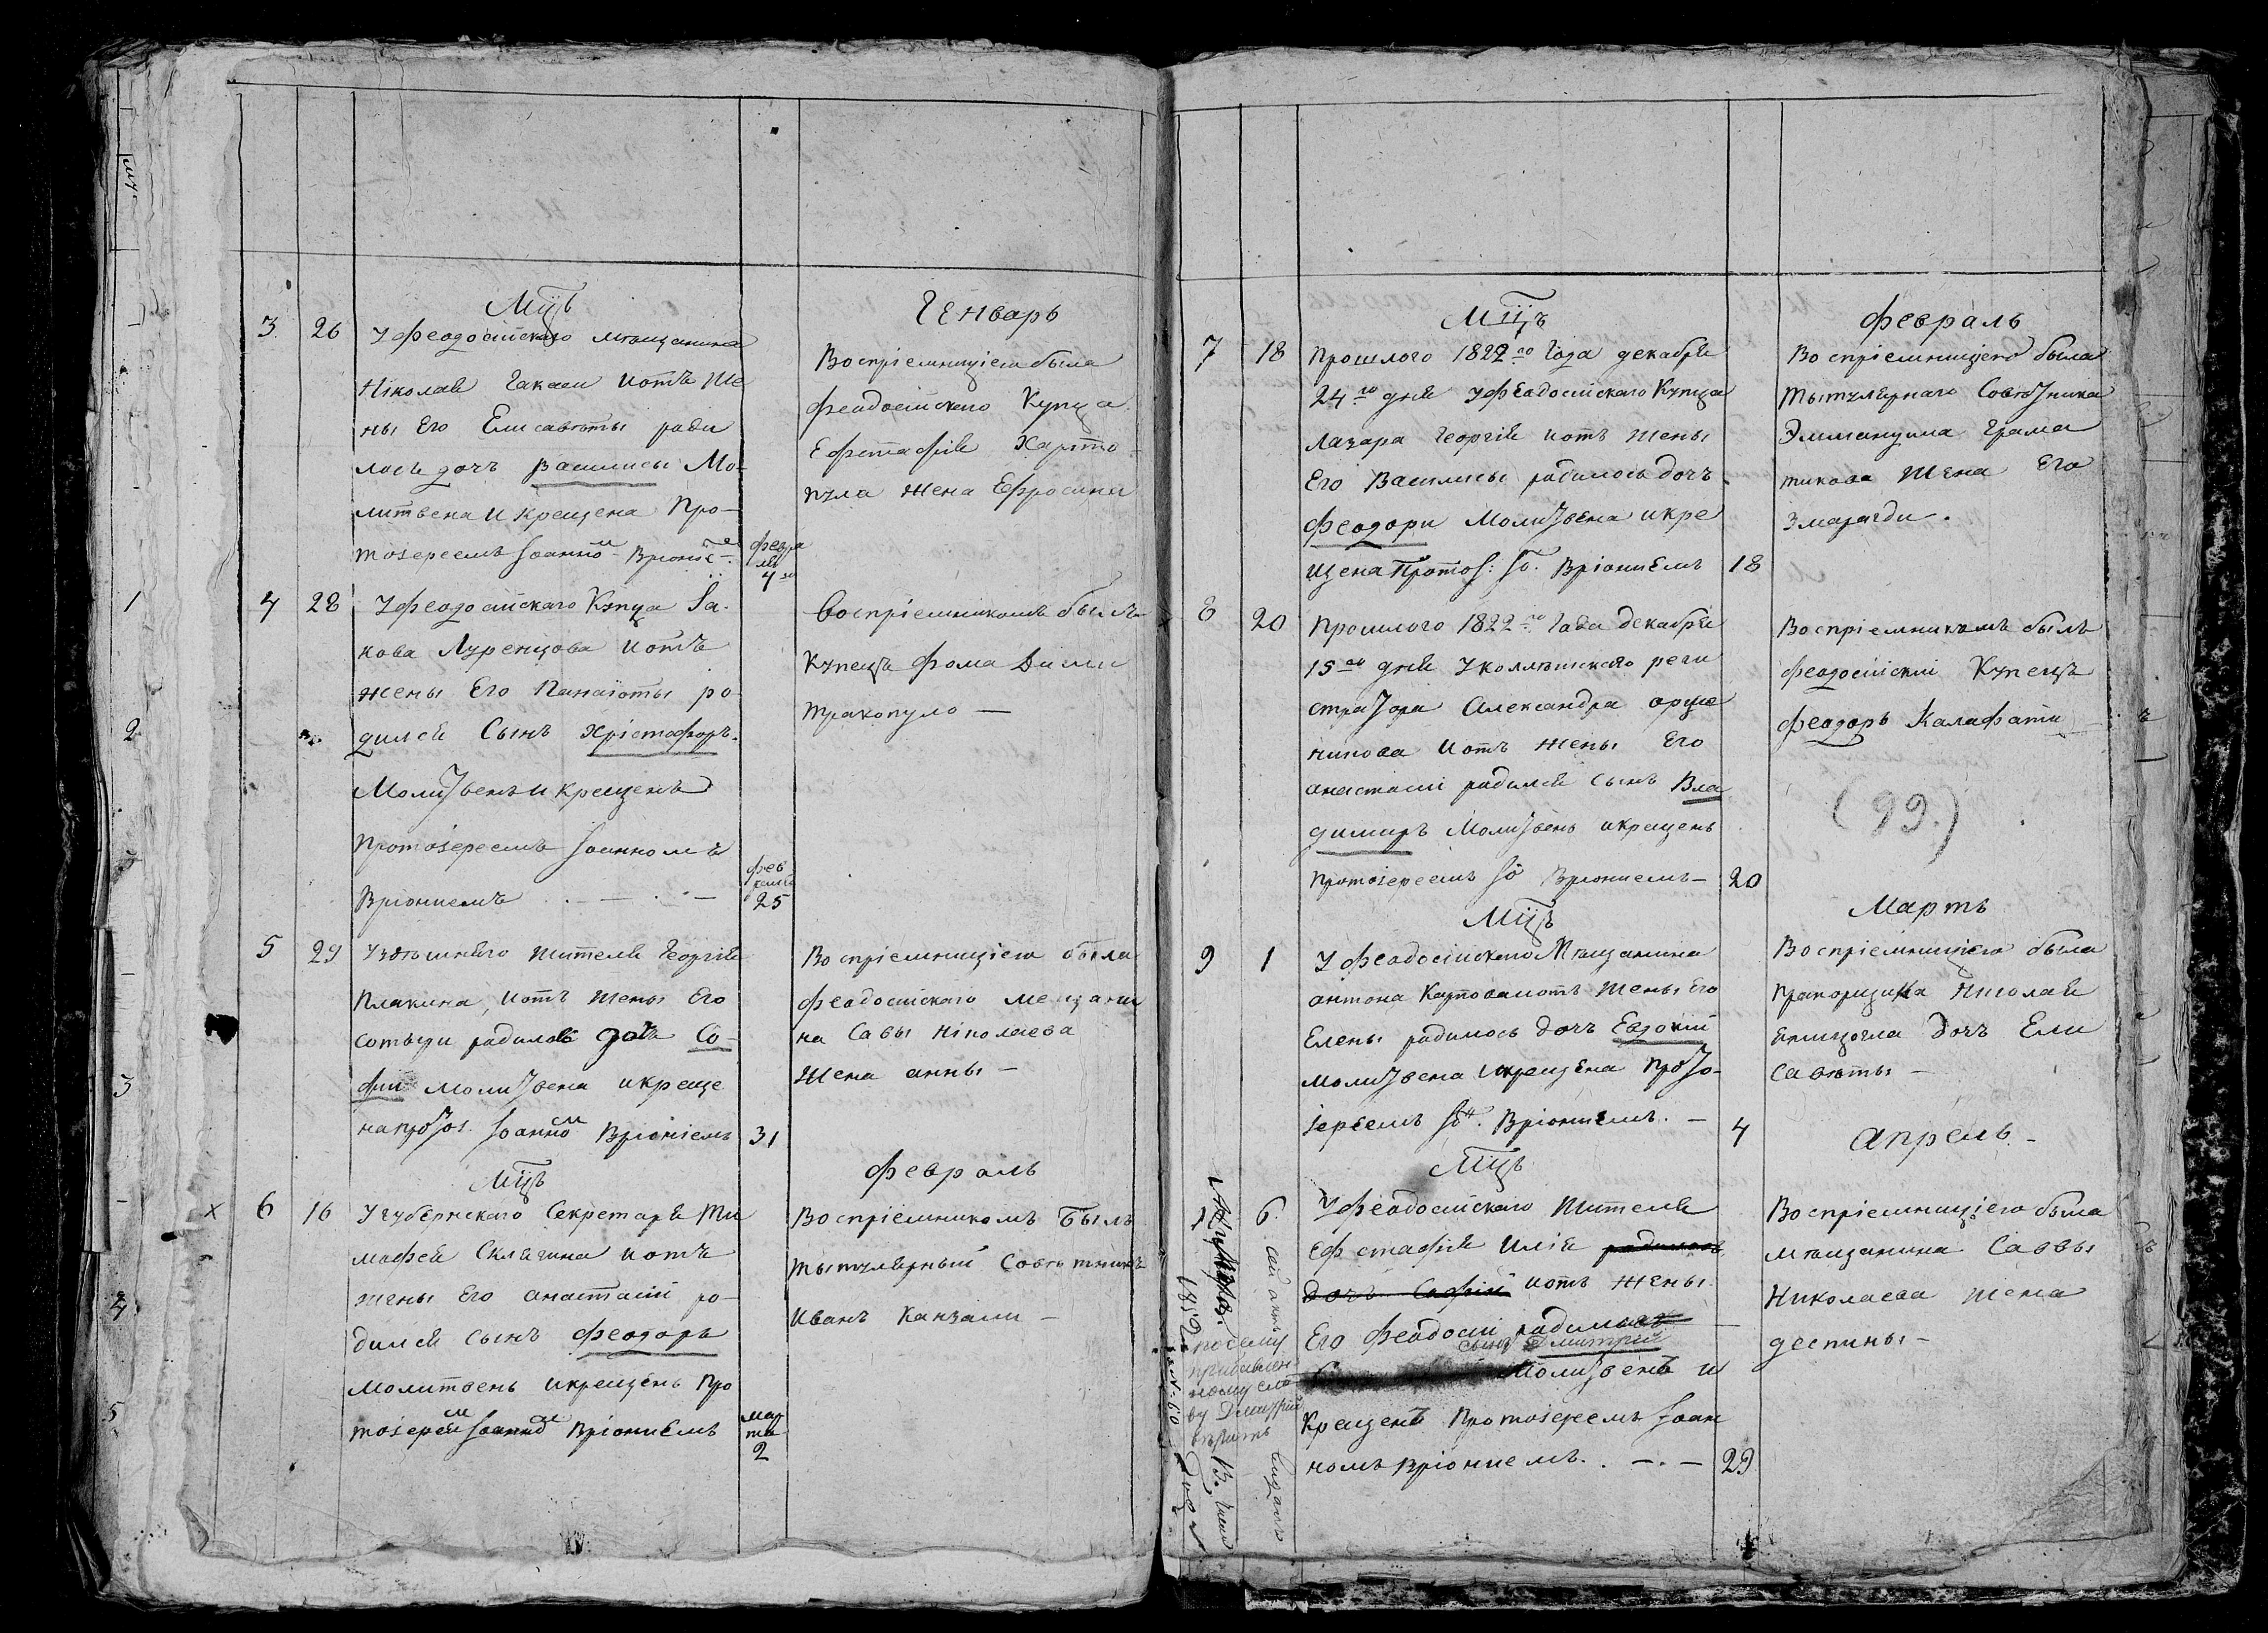 Мцъ
Генварь
3. 26 У феодосійскаго мѣщанина
Ніколая Гакали и отъ же
ны Его Елисаветы роди
лась дочъ Василиса Мо-
литвена и Крещена Про-
тоіереемъ Іоанномъ Вріоніе
февра
ля
4 го
Воспріемницею была
феадосійского Купца
Ефстафія Харто
пула жена Ефросини
4 28 У феодосійскаго Купца Іа-
кова Луренцова и отъ
жены Его Панаіоты ро
дился Сынъ Хрістофоръ.
Молитвенъ и крещенъ
Протоіереемъ Іоанномъ
Вріониемъ
фев
раля
25
Воспріемникомъ былъ
Купецъ Фома Дими
тракопуло —
5 29 У здѣшняго жителя Георгія
Плакина, и отъ жены Его
Сотири радилась дочь Со-
фии молитвена и креще
на прот. Іоанномъ Вріоніемъ 31
Воспріемницею была
феадосійскаго мещани
на Савы Ніколаева
жена анны —
Мцъ
февраль
х 6 16 У губернскаго Секретаря Ти
мофея Склягина и отъ
жены Его анастасіи ро-
дился сынъ феодоръ
молитвенъ и крещенъ про
тоіереемъ Іоанномъ Вріониемъ
мар
та
2
Воспріемникомъ Былъ
тытулярный Совѣтникъ
Иванъ Канзали —
Мцъ
февраль
7 18 Прошлого 1822 го Года декабря
24 го дня У феадосійскаго Купца
Лазара Георгія и отъ жены
Его Василисы радилось дочъ
феодори Молитвена и кре
щена Протоі: Іо. Вріониемъ 18
Воспріемницею была
тытулярнаго Совѣтника
Эммануила Грама
тикова жена Его
Змарагди.
8 20 Прошлого 1822 го Года декабря
15 го дня У коллѣжскаго реги
стратора Александра оруже
никова и отъ жены Его
анастасіи радился сынъ Вла
димиръ молитвенъ и крещенъ
протоіереемъ Іо Вріониемъ — 20
Воспріемникомъ былъ
феодосійскій Купецъ
феодоръ Калафати
(99.)
Мцъ
Мартъ
9 1 У феадосійского Мѣщанина
антона Картова и отъ жены Его
Елены радилось дочъ Евдокіи
молитвена и крещена прото-
іереемъ Іо. Вріониемъ. — 4
Воспріемницею была
прапорщика Николая
дочъ Ели
саветы —
Мцъ
апрель —
6. У феадосійскаго жителя
Ефстафія Иліи радилась
дочъ Софіи и отъ жены
Его феадосіи радилась
сынъ Дмитрій
Молитвенъ и
Крещенъ Протоіереемъ Іоан
номъ Вріониемъ. — . — 29
Воспріемницею была
мѣщанина Саввы
Николаева жена
деспины —
1852
по сему
прибавлен
ному сло
ву Дмитрій